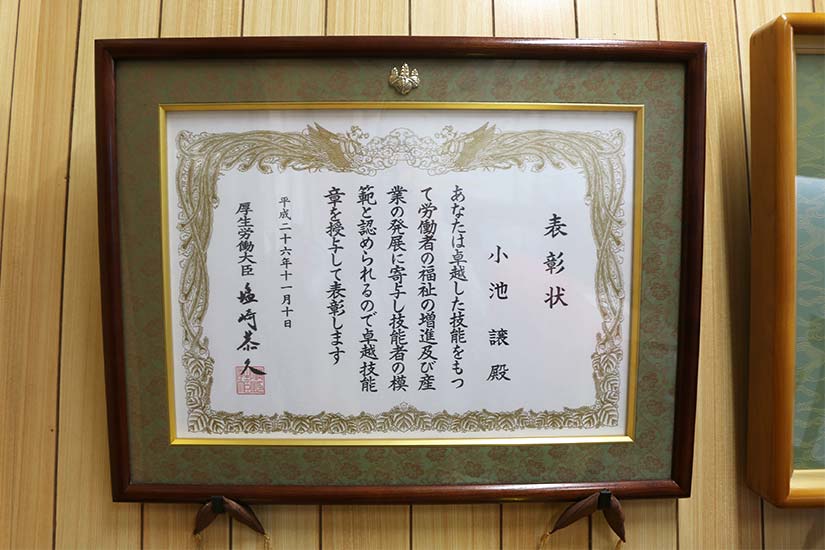 表彰状
小池譲殿
あなたは卓越した技能をもつ
て労働者の福祉の増進及び産
業の発展に寄与し技能者の模
範と認められるので卓越技能
章を授与して表彰します
平成二十六年十一月十日
厚生労働大臣 塩崎恭久